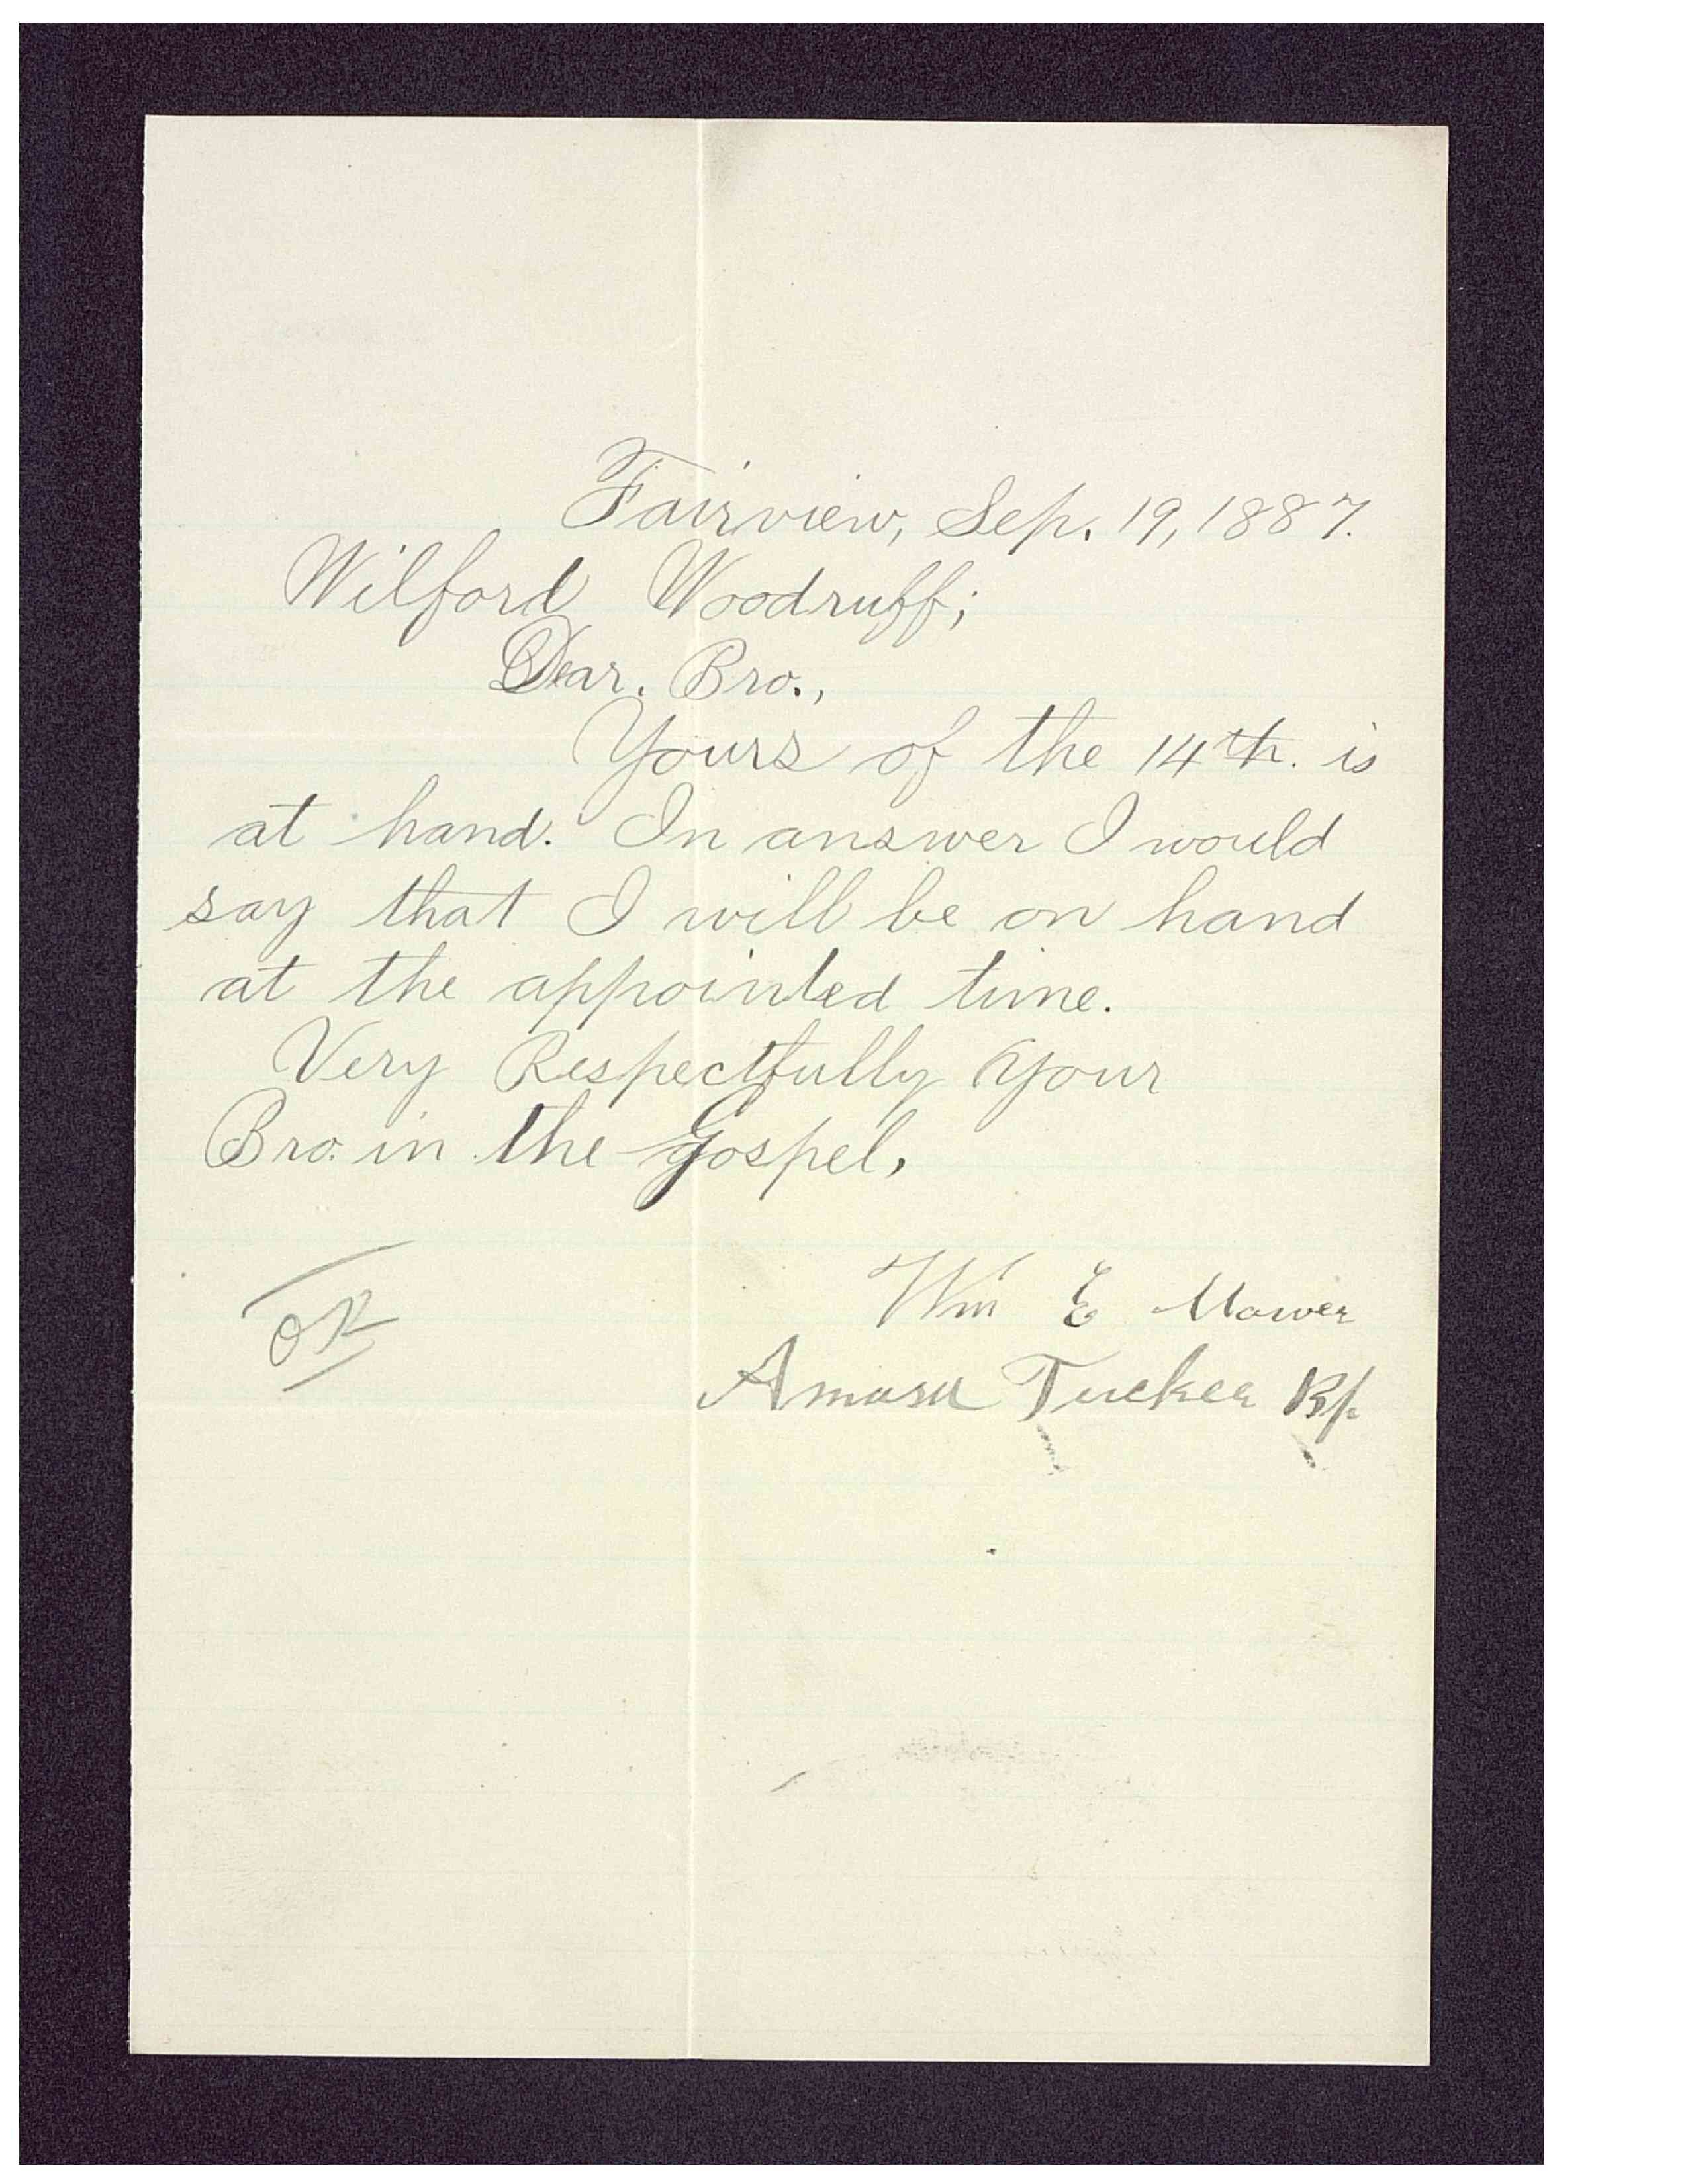 Fairview, Sep. 19, 1887.
Wilford Woodruff;
Dear. Bro.,
Yours of the 14th. is
at hand. In answer I would
say that I will be on hand
at the appointed time.
Very Respectfully Your
Bro. in the Gospel,
Wm E Mower
OK
Amasa Tucker Bp